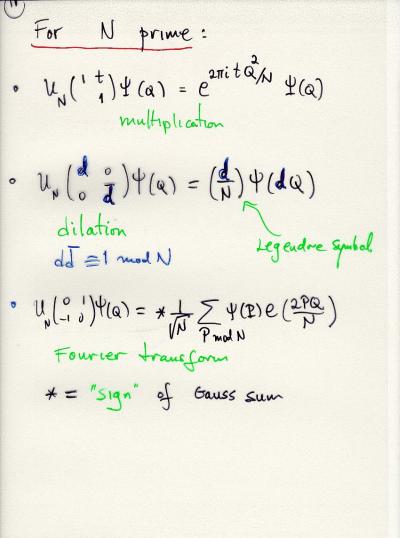 For N prime :
• U_N(1 t 1)Ψ(Q) = e^{2πi t Q²/N} Ψ(Q)
multiplication
• U_N(d 0 0 d̄)Ψ(Q) = (d/N) Ψ(dQ)
dilation
Legendre symbol
dd̄ ≡ 1 mod N
• U_N(0 1 -1 0)Ψ(Q) = * 1/√N Σ_{P mod N} Ψ(P) e(2PQ/N)
Fourier transform
* = "sign" of Gauss sum